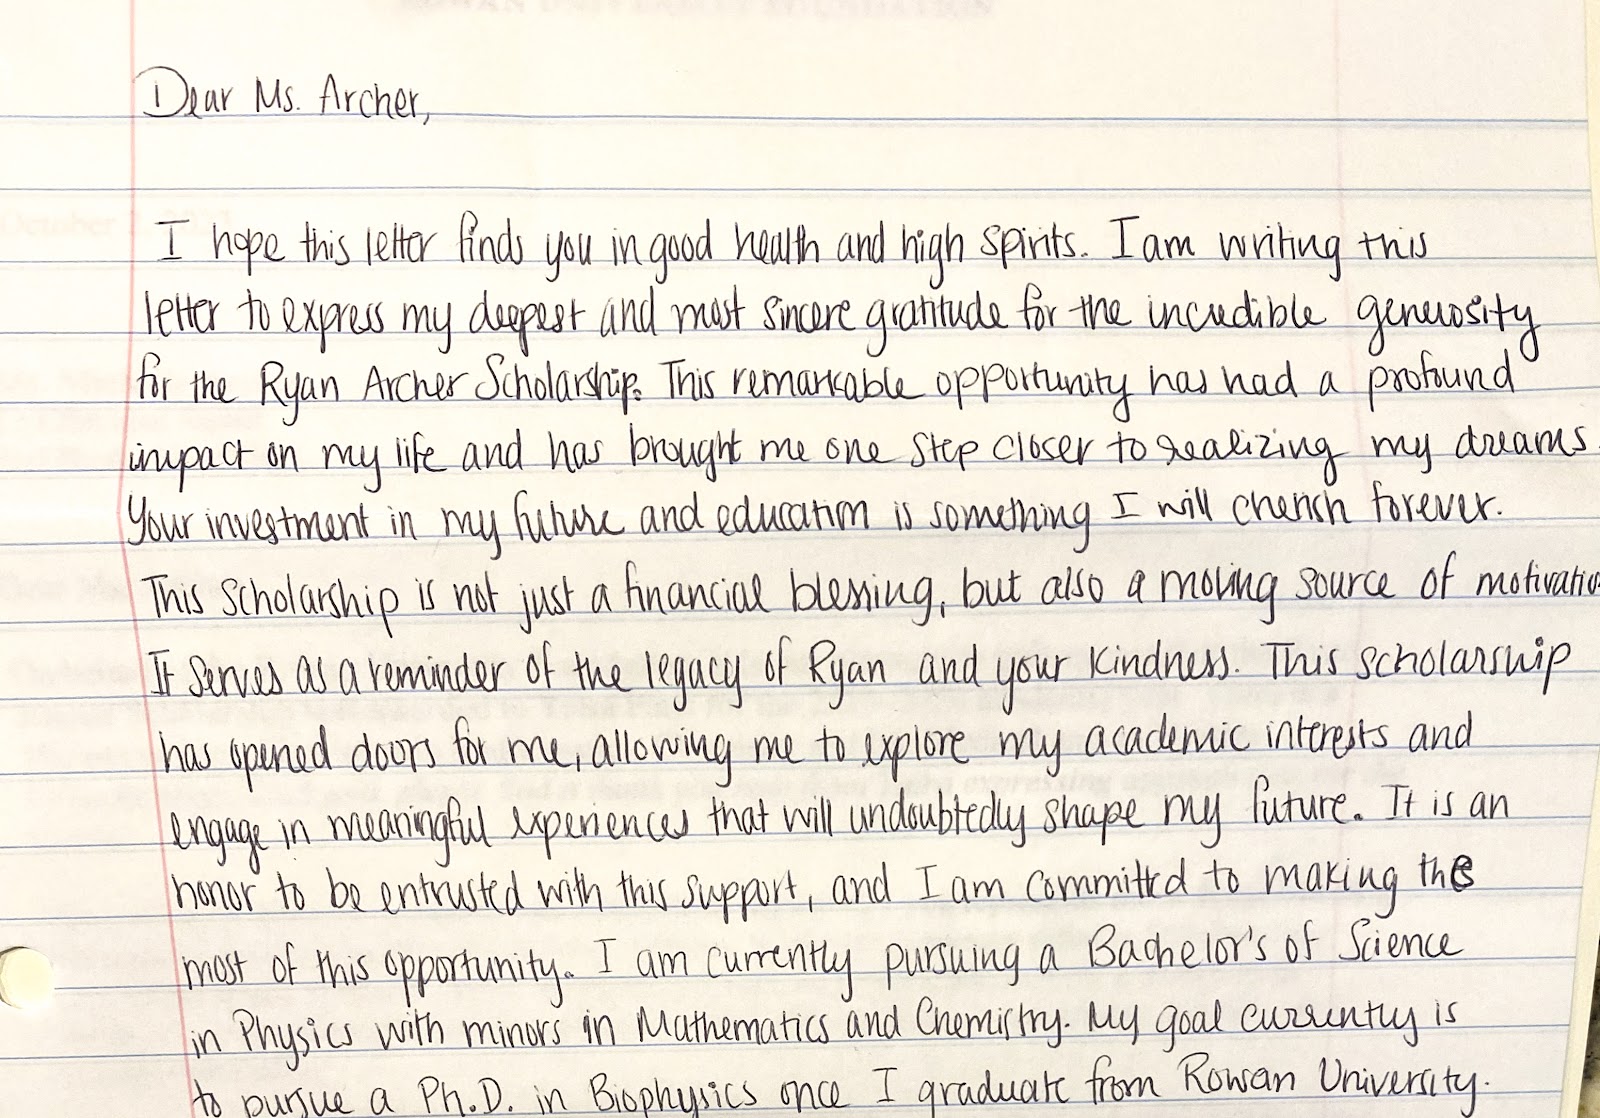 ROWAN UNIVERSITY FOUNDATION
Dear Ms. Archer,
October 2, 202
I hope this letter finds you in good health and high spirits. I am writing this
letter to express my deepest and most sincere gratitude for the incredible generosity
for the Ryan Archer Scholarship. This remarkable opportunity has had a profound
impact on my life and has brought me one step closer to realizing my dreams.
Your investment in my future and education is something I will cherish forever.
This scholarship is not just a financial blessing, but also a moving source of motivatio
It serves as a reminder of the legacy of Ryan and your kindness. This scholarship
has opened doors for me, allowing me to explore my academic interests and
engage in meaningful experiences that will undoubtedly shape my future. It is an
honor to be entrusted with this support, and I am committed to making the
most of this opportunity. I am currently pursuing a Bachelor's of Science
in Physics with minors in Mathematics and Chemistry. My goal currently is
to pursue a Ph.D. in Biophysics once I graduate from Rowan University.